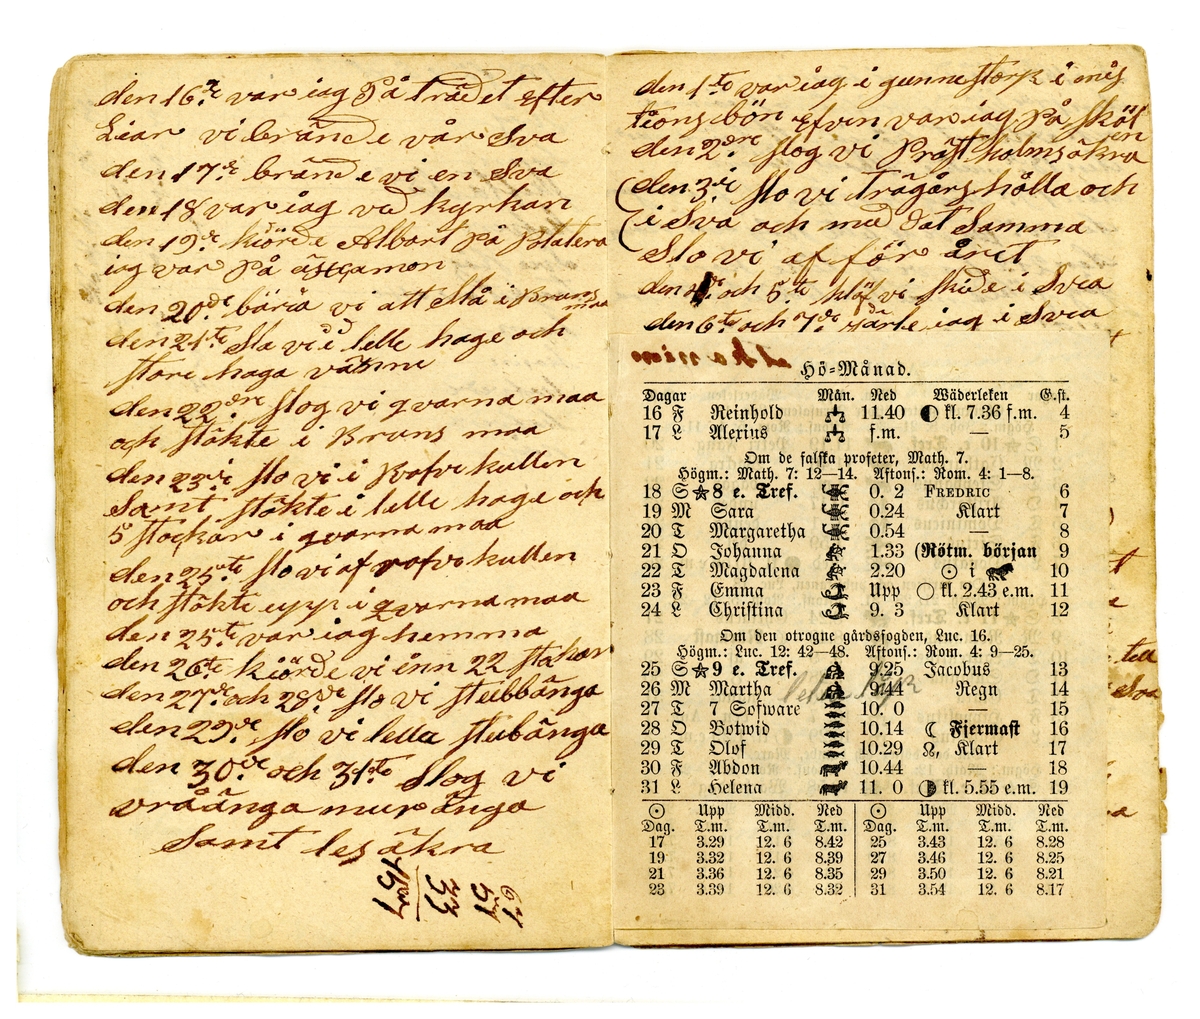 den 16de var iag På trädet efter
Liar vi brände vår Sva
den 17de brände vi en Sva
den 18 var iag ved kyrkan
den 19de kiörde Albart på Platera
iag var På
den 20de böria vi att slå i Bruns maa
den 21te Sla vi i lelle hage och
store haga
den 22dre slog vi qvarna maa
och stökte i Bruns maa
den 23di slo vi i Rofvekullen
Samt stökte i lelle hage och
5 stackar i qvarna maa
den 25te slo vi af rofvekullen
och stökte upp i qvarna maa
den 25te var iag hemma
den 26te kiörde vi inn 22 stakar
den 27de och 28de slo vi stubbänga
den 29de slo vi lella stubänga
den 30de och 31te slog vi
vråänga mur änga
Samt les äkra
61
51
33
157
den 1te var iag i gunnestorp i mis
tions bön efven var iag På sköt en
den 2dre slog vi Präst holmsåkra
den 3di slo vi trägårs hålla och
i Sva och med dat Samma
Slo vi af för året
den 4de och 5te klöf vi skide i Svea
den 6te och 7de särle iag i Svea
Hö=Månad.
Dagar Mån. Ned Wäderleken G.st.
16 F Reinhold 11.40 kl. 7.36 f.m. 4
17 L Alexius f.m. — 5
Om de falska profeter, Math. 7.
Högm.: Math. 7: 12—14. Aftons.: Rom. 4: 1—8.
18 S 8 e. Tref. 0. 2 FREDRIC 6
19 M Sara 0.24 Klart 7
20 T Margaretha 0.54 — 8
21 O Johanna 1.33 (Rötm. början 9
22 T Magdalena 2.20 ☉ i ♌ 10
23 F Emma Upp kl. 2.43 e.m. 11
24 L Christina 9. 3 Klart 12
Om den otrogne gårdsfogden, Luc. 16.
Högm.: Luc. 12: 42—48. Aftons.: Rom. 4: 9—25.
25 S 9 e. Tref. 9.25 Jacobus 13
26 M Martha 9.44 Regn 14
27 T 7 Sofware 10. 0 — 15
28 O Botwid 10.14 ☾ Fjermast 16
29 T Olof 10.29 ☊, Klart 17
30 F Abdon 10.44 — 18
31 L Helena 11. 0 kl. 5.55 e.m. 19
☉ Upp Midd. Ned ☉ Upp Midd. Ned
Dag. T.m. T.m. T.m. Dag. T.m. T.m. T.m.
17 3.29 12. 6 8.42 25 3.43 12. 6 8.28
19 3.32 12. 6 8.39 27 3.46 12. 6 8.25
21 3.36 12. 6 8.35 29 3.50 12. 6 8.21
23 3.39 12. 6 8.32 31 3.54 12. 6 8.17